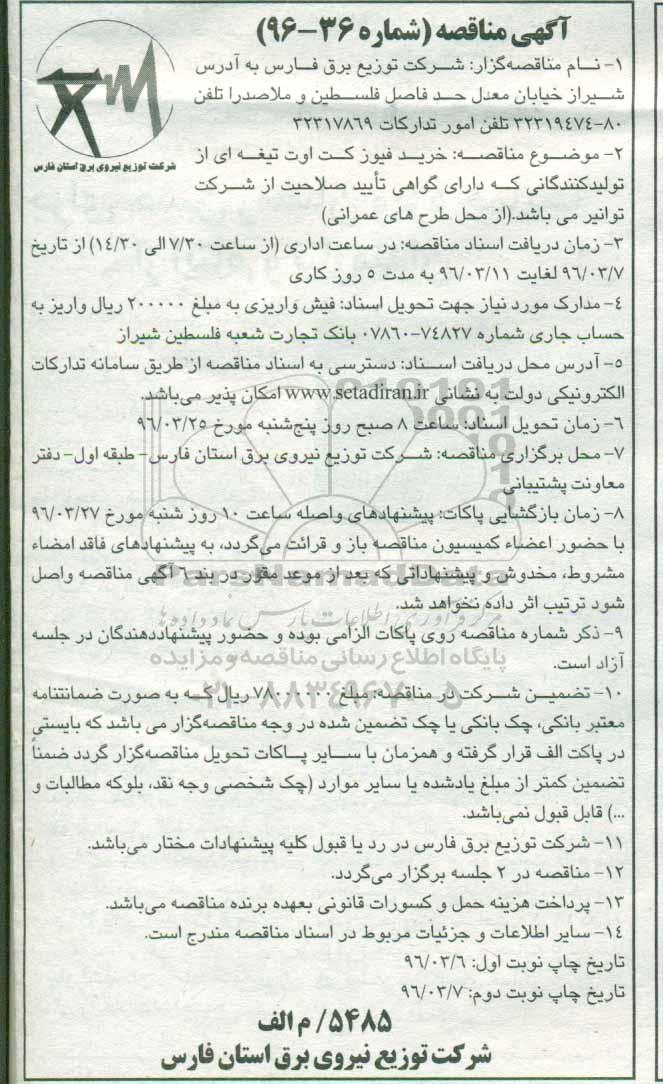 آگهی مناقصه (شماره ۳۶-۹۶)
شرکت توزیع نیروی برق استان فارس
۱- نام مناقصه‌گزار: شرکت توزیع برق فارس به آدرس
شیراز خیابان معدل حد فاصل فلسطین و ملاصدرا تلفن
۸۰-۳۲۳۱۹٤۷٤ تلفن امور تدارکات ۳۲۳۱۷۸٦۹
۲- موضوع مناقصه: خرید فیوز کت اوت تیغه ای از
تولیدکنندگانی که دارای گواهی تأیید صلاحیت از شرکت
توانیر می باشد.(از محل طرح های عمرانی)
۳- زمان دریافت اسناد مناقصه: در ساعت اداری (از ساعت ۷/۳۰ الی ۱٤/۳۰) از تاریخ
۹٦/۰۳/۷ لغایت ۹٦/۰۳/۱۱ به مدت ۵ روز کاری
٤- مدارک مورد نیاز جهت تحویل اسناد: فیش واریزی به مبلغ ۲۰۰۰۰۰ ریال واریز به
حساب جاری شماره ۷٤۸۲۷-۰۷۸٦۰ بانک تجارت شعبه فلسطین شیراز
۵- آدرس محل دریافت اسناد: دسترسی به اسناد مناقصه از طریق سامانه تدارکات
الکترونیکی دولت به نشانی www.setadiran.ir امکان پذیر می‌باشد.
٦- زمان تحویل اسناد: ساعت ۸ صبح روز پنج‌شنبه مورخ ۹٦/۰۳/۲۵
۷- محل برگزاری مناقصه: شرکت توزیع نیروی برق استان فارس- طبقه اول- دفتر
معاونت پشتیبانی
۸- زمان بازگشایی پاکات: پیشنهادهای واصله ساعت ۱۰ روز شنبه مورخ ۹٦/۰۳/۲۷
با حضور اعضاء کمیسیون مناقصه باز و قرائت می‌گردد، به پیشنهادهای فاقد امضاء
مشروط، مخدوش و پیشنهاداتی که بعد از موعد مقرر در بند ٦ آگهی مناقصه واصل
شود ترتیب اثر داده نخواهد شد.
۹- ذکر شماره مناقصه روی پاکات الزامی بوده و حضور پیشنهاددهندگان در جلسه
آزاد است.
۱۰- تضمین شرکت در مناقصه: مبلغ ۷۸۰۰۰۰۰۰ ریال که به صورت ضمانتنامه
معتبر بانکی، چک بانکی یا چک تضمین شده در وجه مناقصه‌گزار می باشد که بایستی
در پاکت الف قرار گرفته و همزمان با سایر پاکات تحویل مناقصه‌گزار گردد ضمناً
تضمین کمتر از مبلغ یادشده یا سایر موارد (چک شخصی وجه نقد، بلوکه مطالبات و
...) قابل قبول نمی‌باشد.
۱۱- شرکت توزیع برق فارس در رد یا قبول کلیه پیشنهادات مختار می‌باشد.
۱۲- مناقصه در ۲ جلسه برگزار می‌گردد.
۱۳- پرداخت هزینه حمل و کسورات قانونی بعهده برنده مناقصه می‌باشد.
۱٤- سایر اطلاعات و جزئیات مربوط در اسناد مناقصه مندرج است.
تاریخ چاپ نوبت اول: ۹٦/۰۳/٦
تاریخ چاپ نوبت دوم: ۹٦/۰۳/۷
۵۴۸۵/ م الف
شرکت توزیع نیروی برق استان فارس
ParsNamadData
پایگاه اطلاع رسانی مناقصه و مزایده